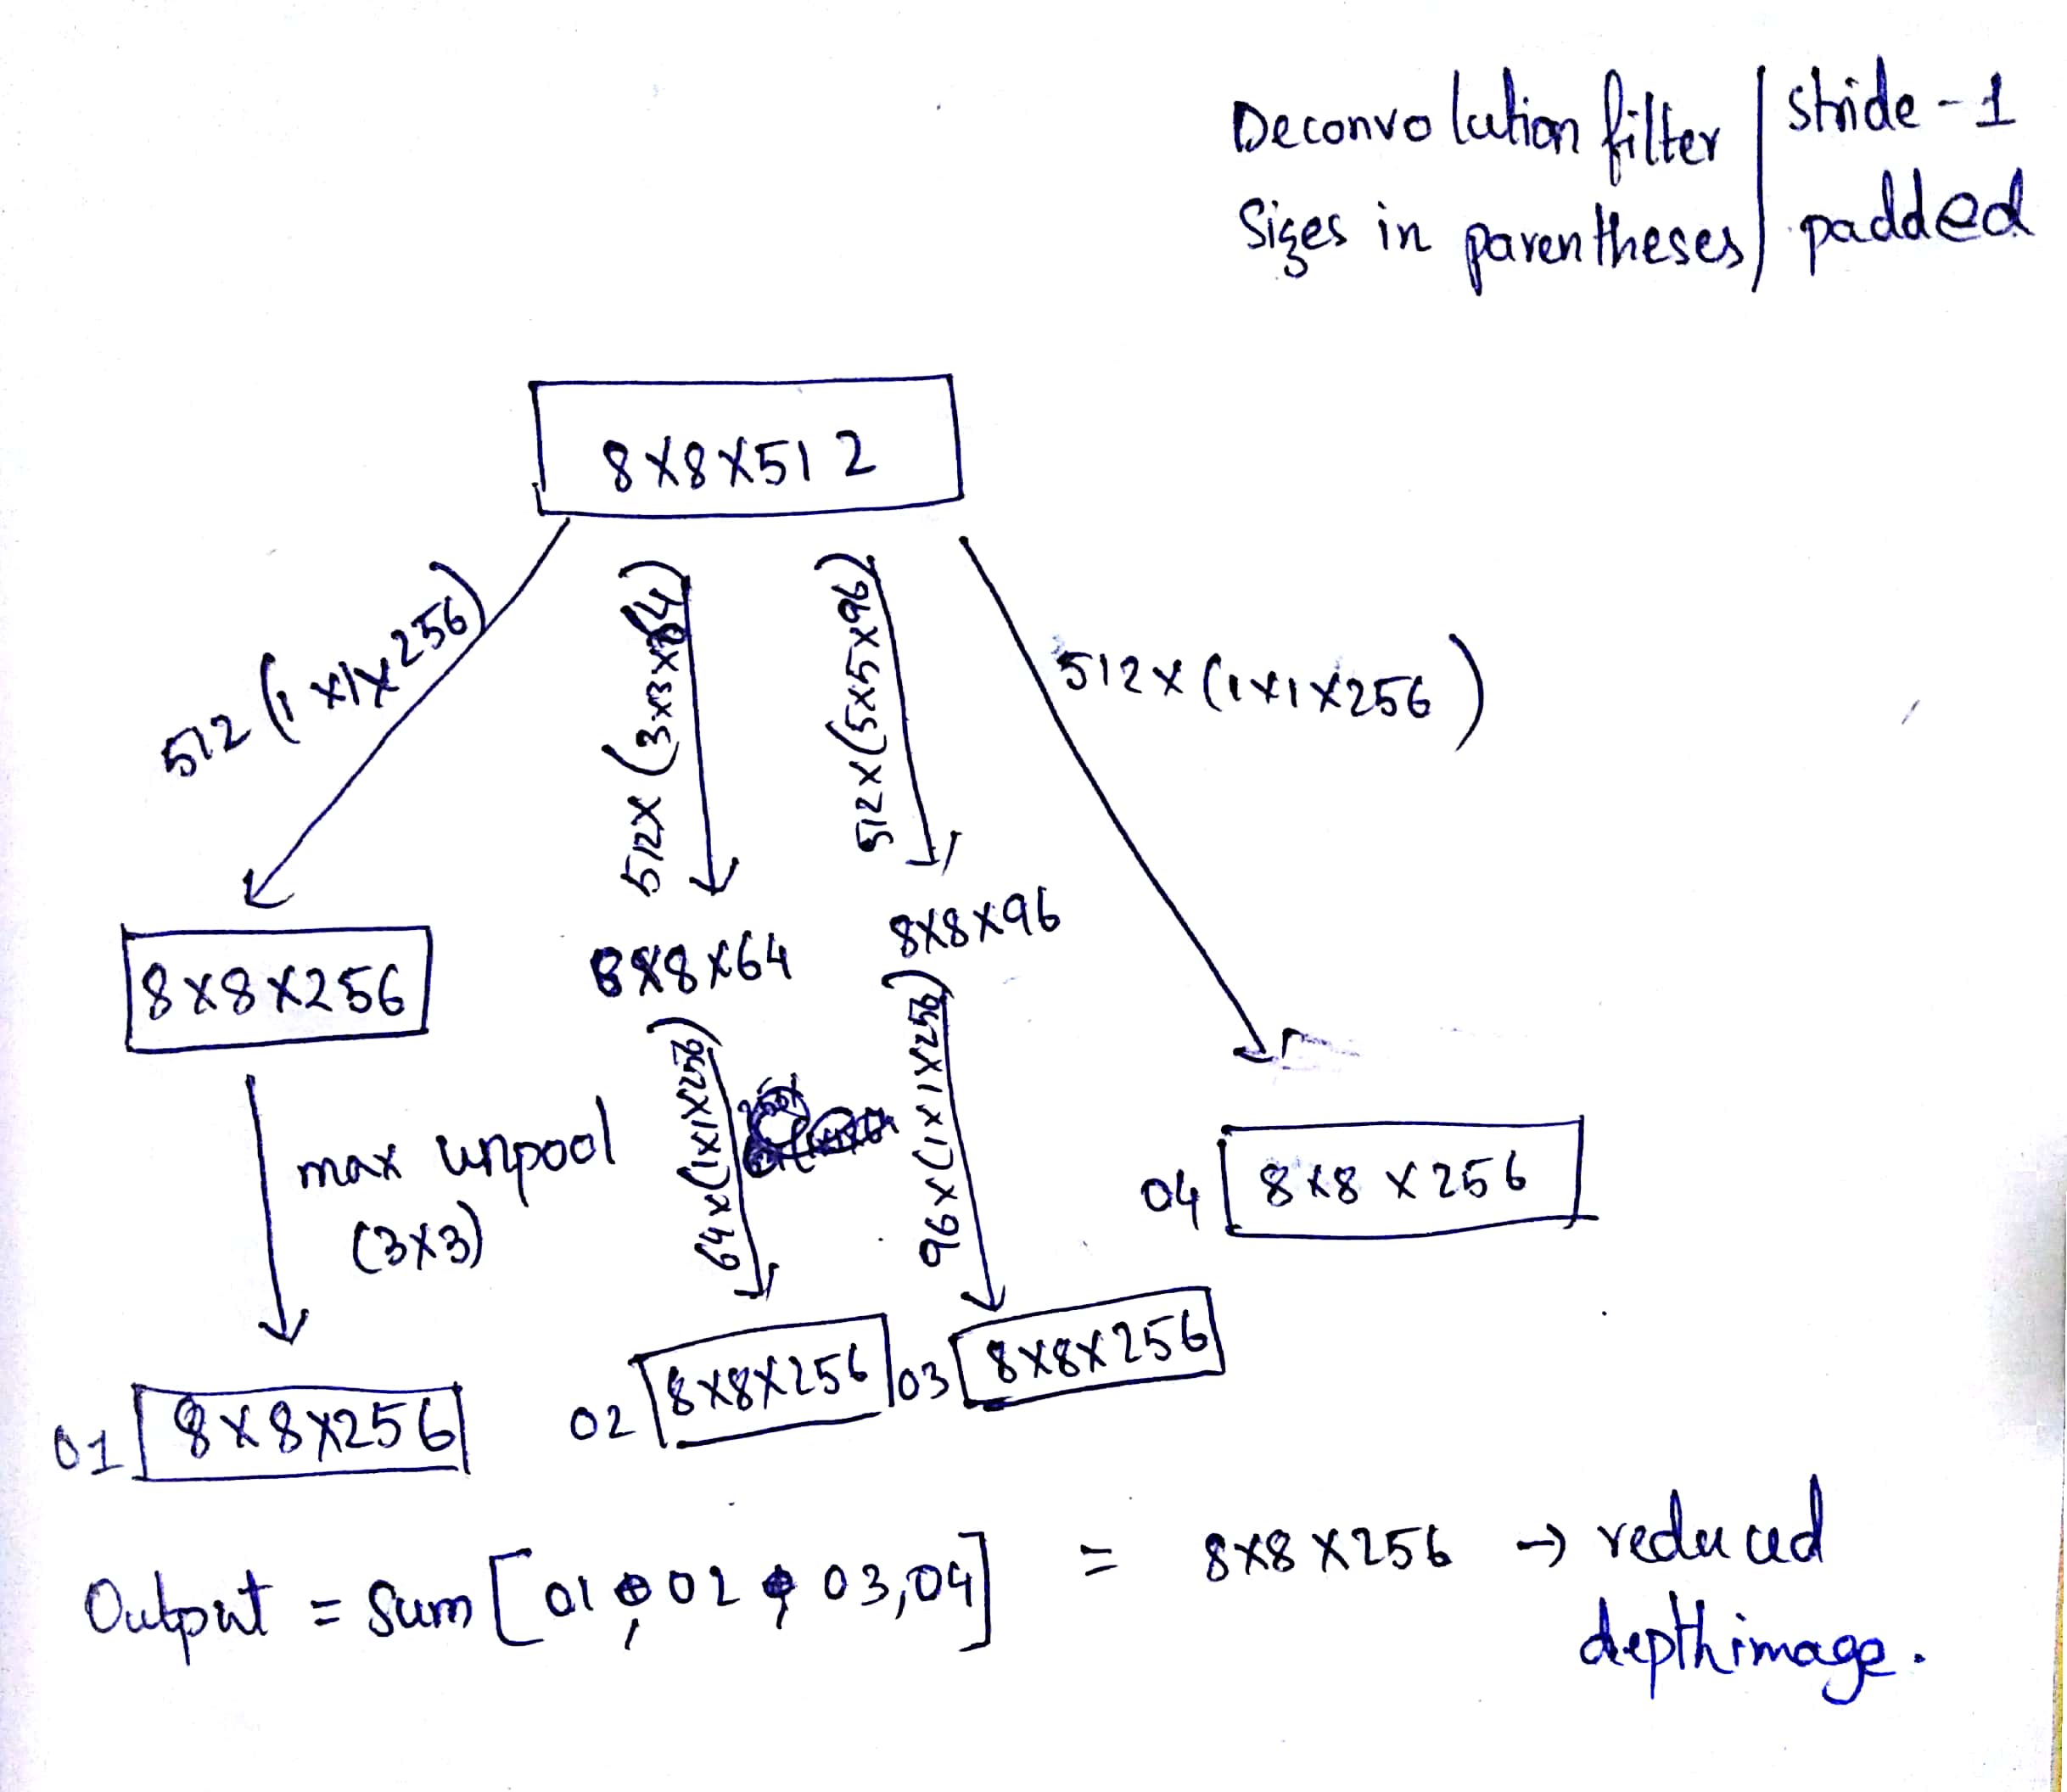 Deconvolution filter | stride-1
Sizes in parentheses | padded
8x8x512
512 (1x1x256)
512x (3x3x64)
512x(5x5x96)
512x(1x1x256)
8x8x256
8x8x64
8x8x96
max unpool
(3x3)
64x(1x1x256)
96x(1x1x256)
04 8x8x256
01 8x8x256
02 8x8x256
03 8x8x256
Output = Sum [01, 02, 03,04] = 8x8x256 → reduced
depthimage.